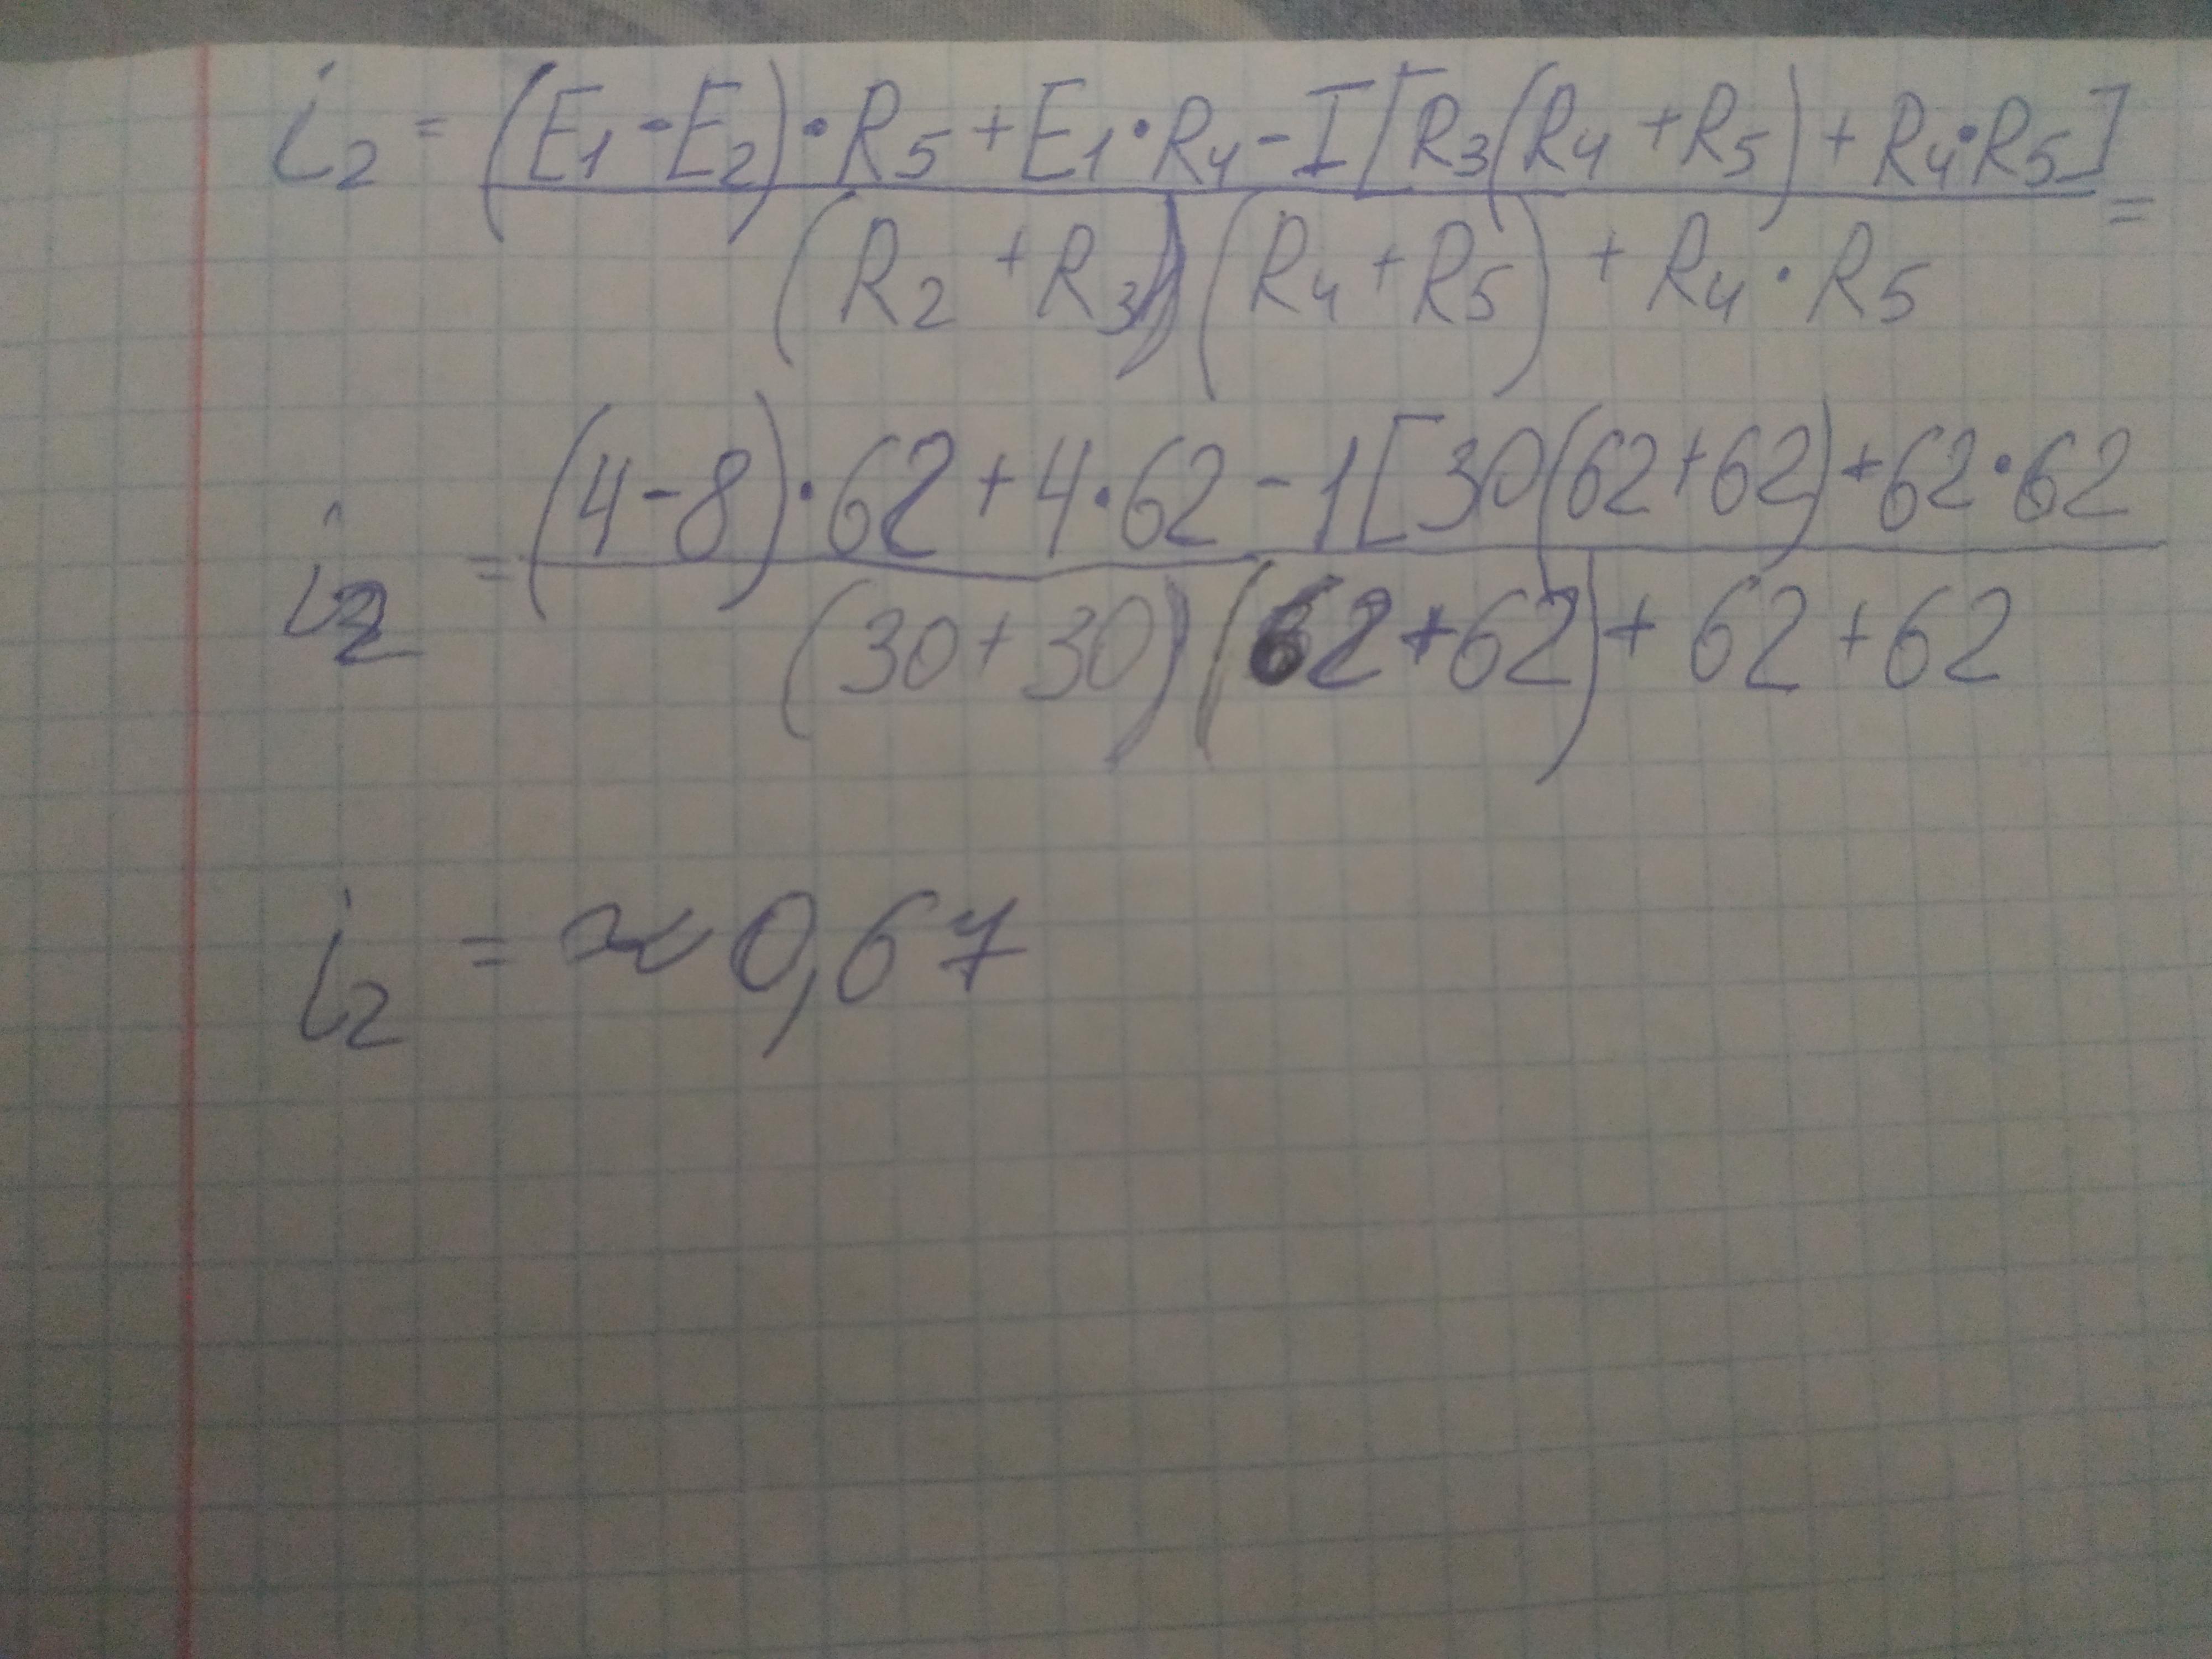 i₂ = (E₁ - E₂) · R₅ + E₁ · R₄ - I [R₃ (R₄ + R₅) + R₄ · R₅] =
(R₂ + R₃) (R₄ + R₅) + R₄ · R₅
i₂ = (4 - 8) · 62 + 4 · 62 - 1 [30 (62 + 62) + 62 · 62
(30 + 30) (62 + 62) + 62 + 62
i₂ = ≈ 0,67